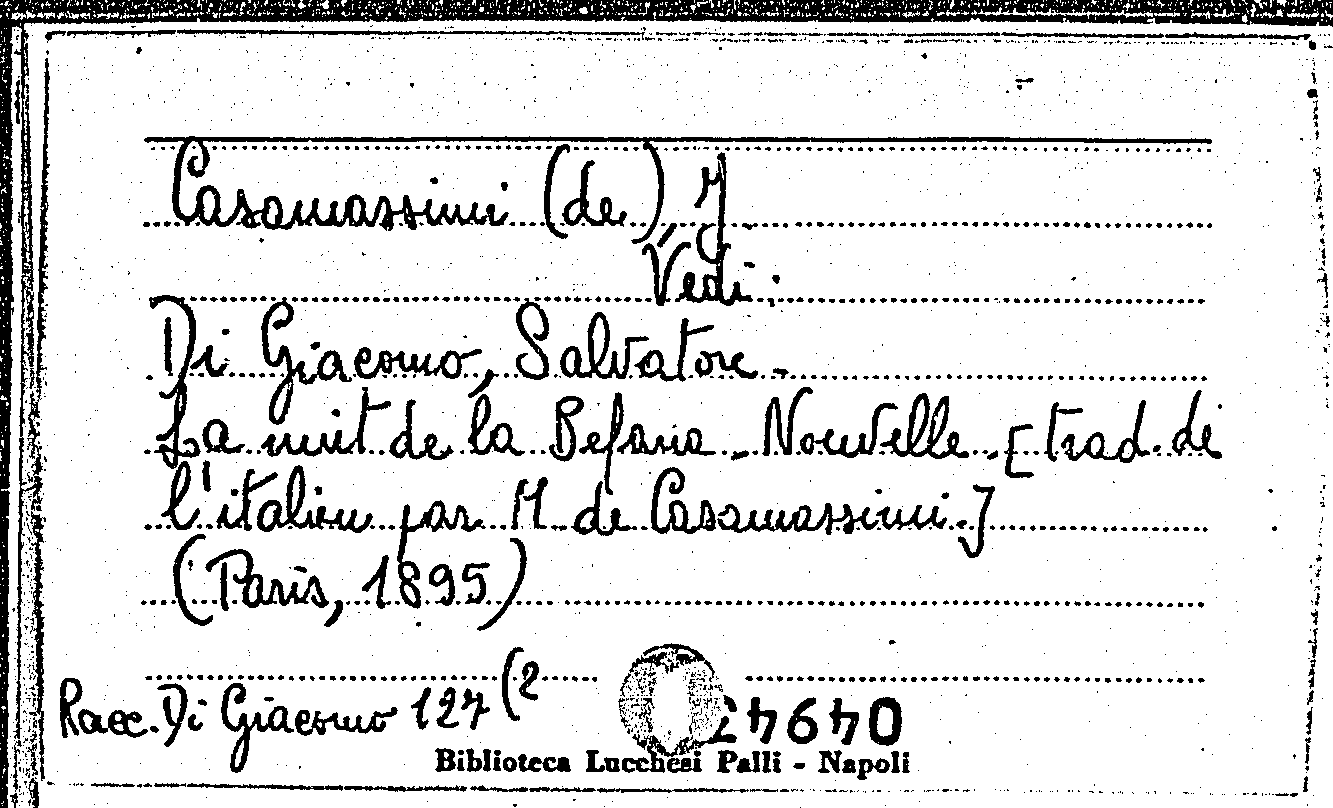 Casamassimi (de), M
Vedi:
Di Giacomo, Salvatore.
La nuit de la Befana. Nouvelle. [trad. di
l'italien par M. de Casamassimi.]
(Paris, 1895)
Racc. Di Giacomo 127 (2
Biblioteca Lucchesi Palli - Napoli